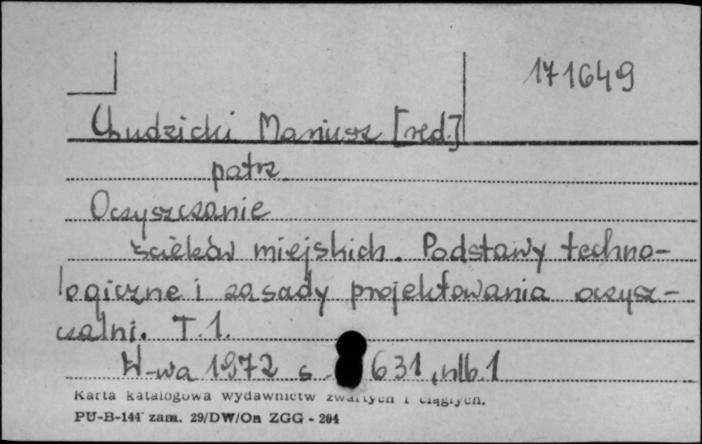 171649
Chudzicki Mariusz [red.]
patrz
Oczyszczanie
ścieków miejskich. Podstawy techno-
logiczne i zasady projektowania oczysz-
czalni. T.1.
W-wa 1972 s. 631, nlb.1
Karta katalogowa wydawnictw zwartych i ciągłych.
PU-B-144 zam. 29/DW/On ZGG - 204